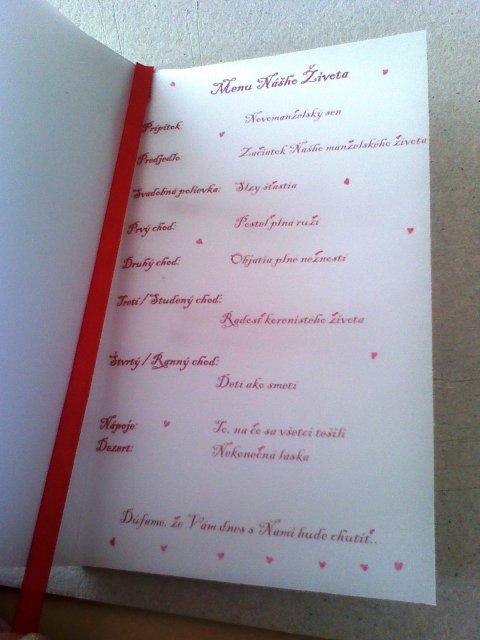 Menu Nášho Života
Prípitok: Novomanželský sen
Predjedlo: Začiatok Nášho manželského života
Svadobná polievka: Slzy šťastia
Prvý chod: Posteľ plná ruží
Druhý chod: Objatia plné nežnosti
Tretí / Studený chod:
Radosť korenistého života
Štvrtý / Ranný chod:
Deti ako smetí
Nápoje: To, na čo sa všetci tešili
Dezert: Nekonečná láska
Dúfame, že Vám dnes s Nami bude chutiť..